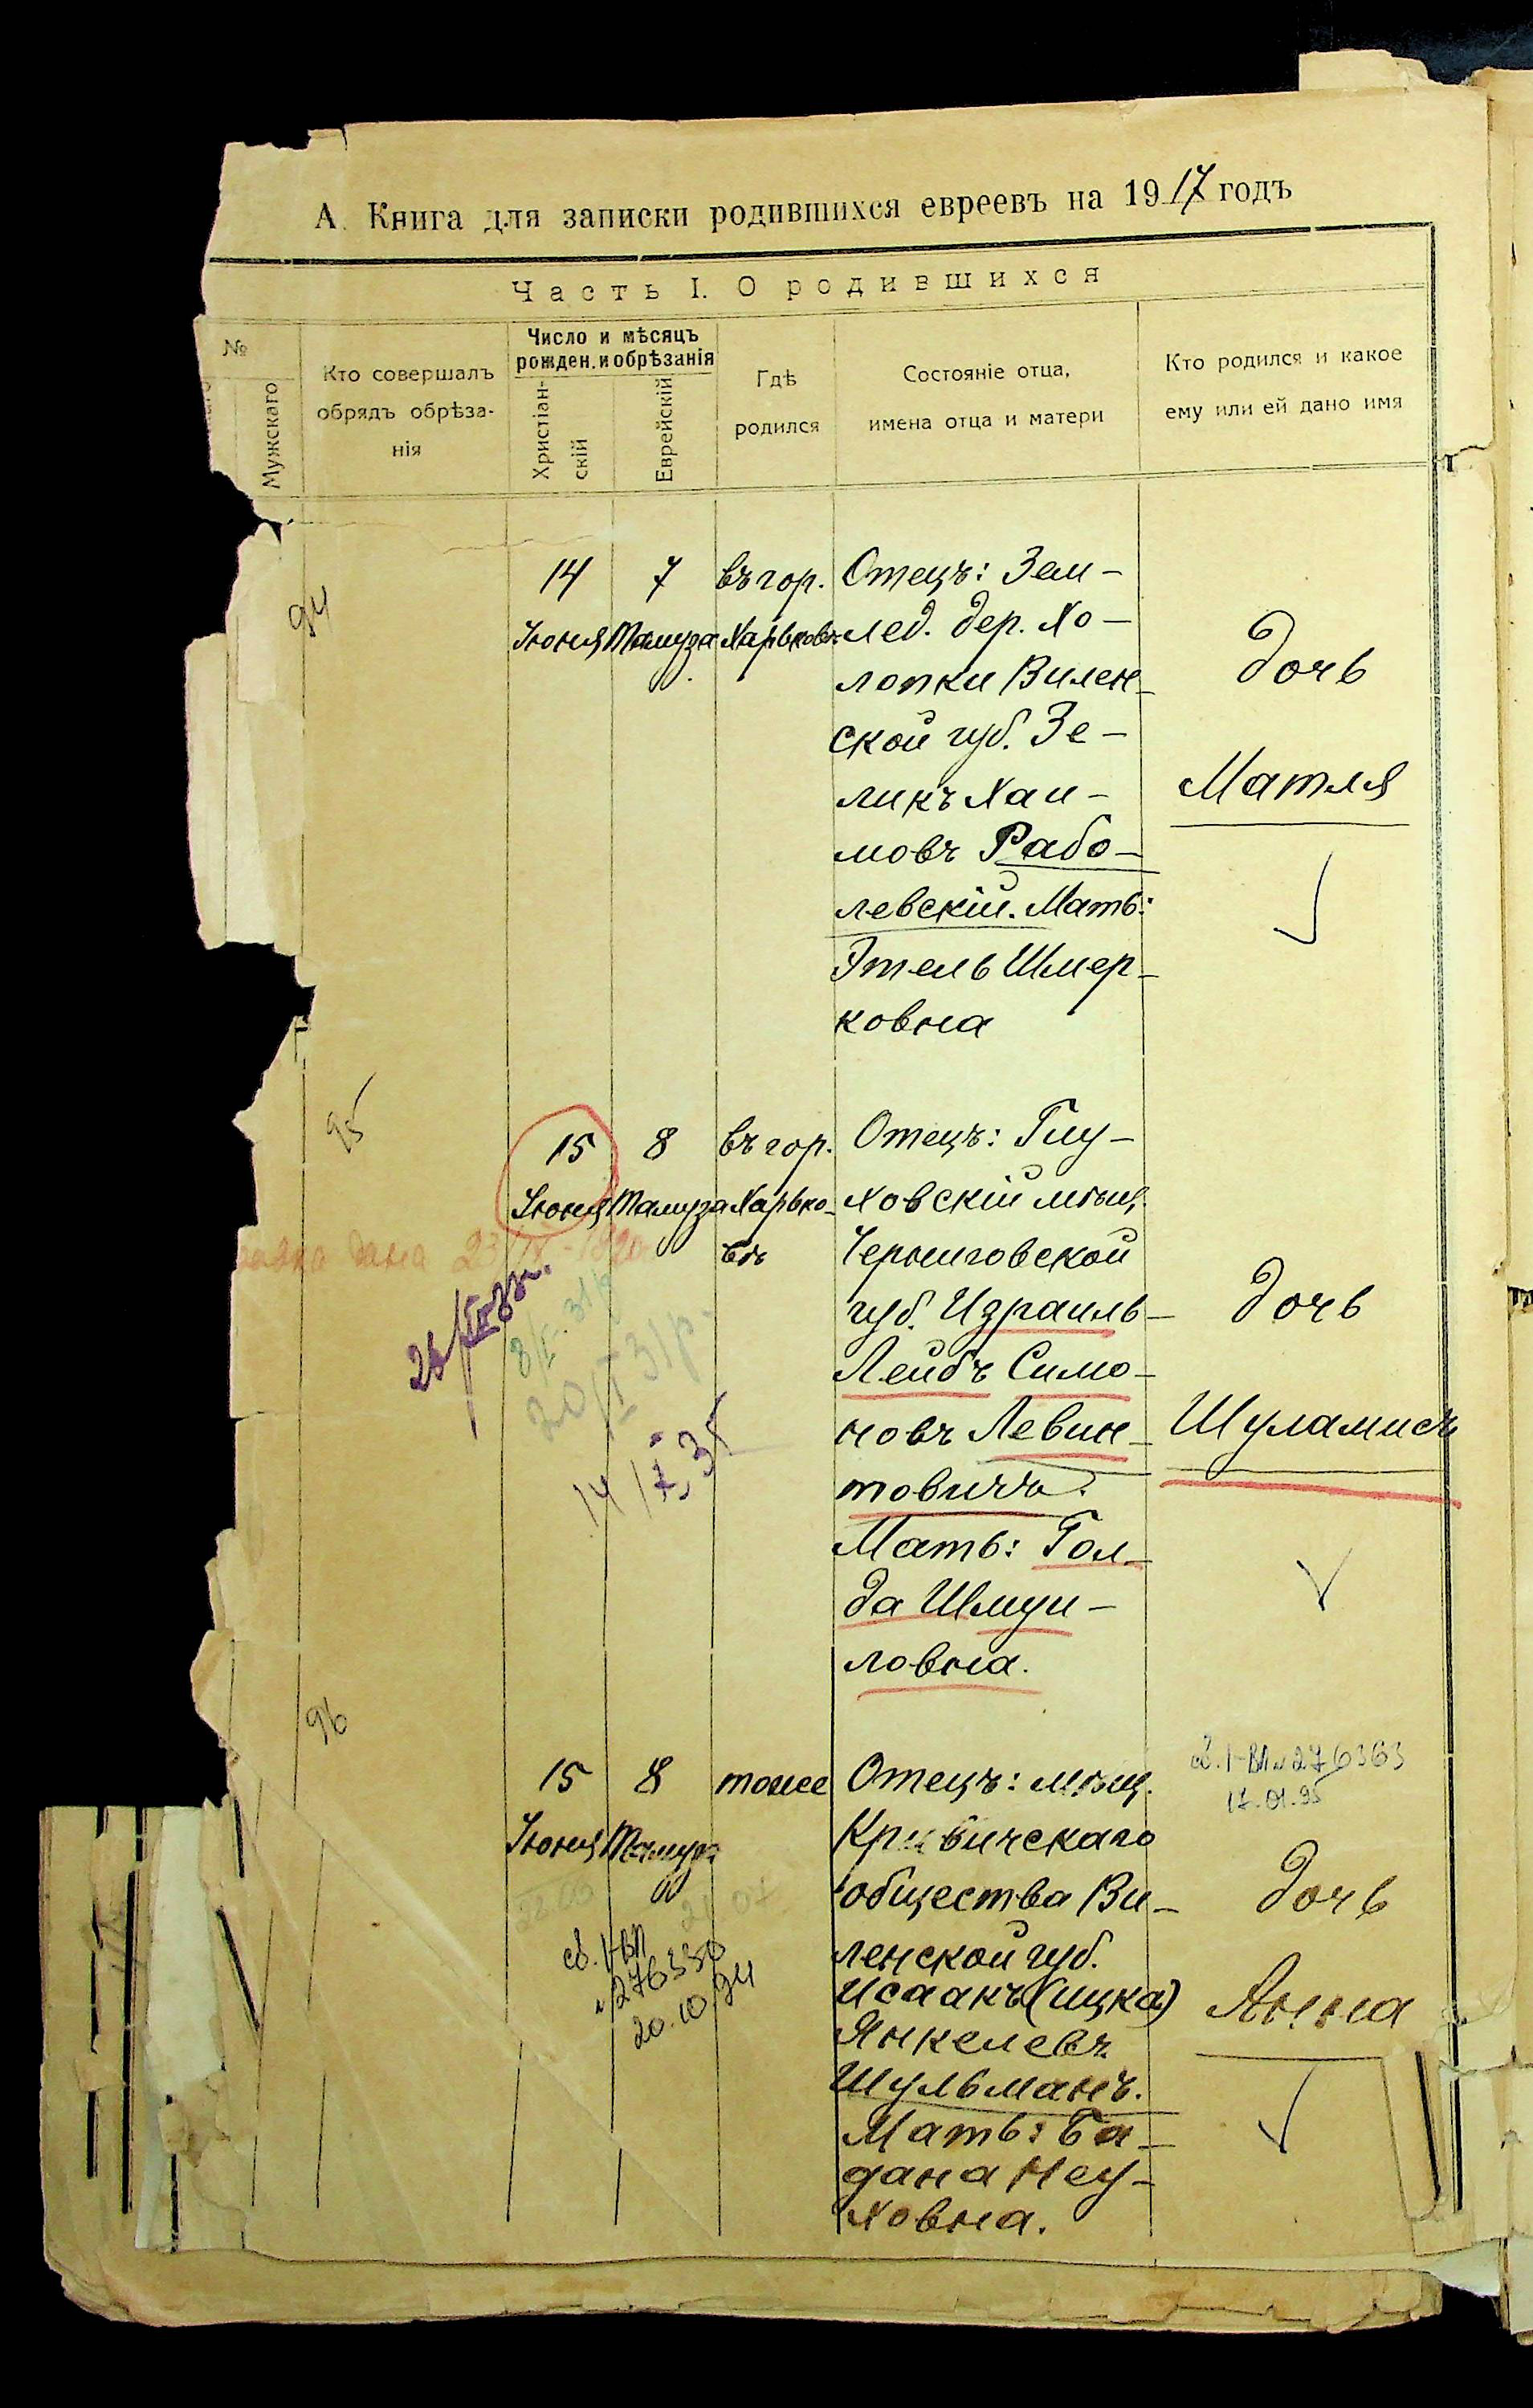 А. Книга для записки родившихся евреевъ на 1917 годъ
Часть I. О родившихся
№
Мужскаго
Кто совершалъ
обрядъ обрѣза-
нія
Число и мѣсяцъ
рожден. и обрѣзанія
Христіан-
скій
Еврейскій
Гдѣ
родился
Состояніе отца,
имена отца и матери
Кто родился и какое
ему или ей дано имя
94
14
Іюня
7
Тамуза
въ гор.
Харьковѣ
Отецъ: Зем-
лед. дер. Хо-
лопки Вилен-
ской губ. Зе-
ликъ Хаи-
мовъ Рабо-
левскій. Мать:
Этель Шмер-
ковна
дочь
Матля
95
15
Іюня
8
Тамуза
въ гор.
Харько-
вѣ
Отецъ: Глу-
ховскій мѣщ.
Черниговской
губ. Израиль-
Лейбъ Симо-
новъ Левин-
товичъ.
Мать: Гол-
да Шмуи-
ловна.
дочь
Шуламисъ
дана 23
8/V-31р
20/I 31р.
14/X,35
96
15
Іюня
8
Тамуза
тоже
Отецъ: мѣщ.
Кривичскаго
общества Ви-
ленской губ.
Исаакъ (Ицка)
Янкелевъ
Шульманъ.
Мать: Ба-
дана Неу-
ховна.
св. I-ВЛ №276363
17.01.95
дочь
Анна
св. I-ВЛ
№276330
20.10.94